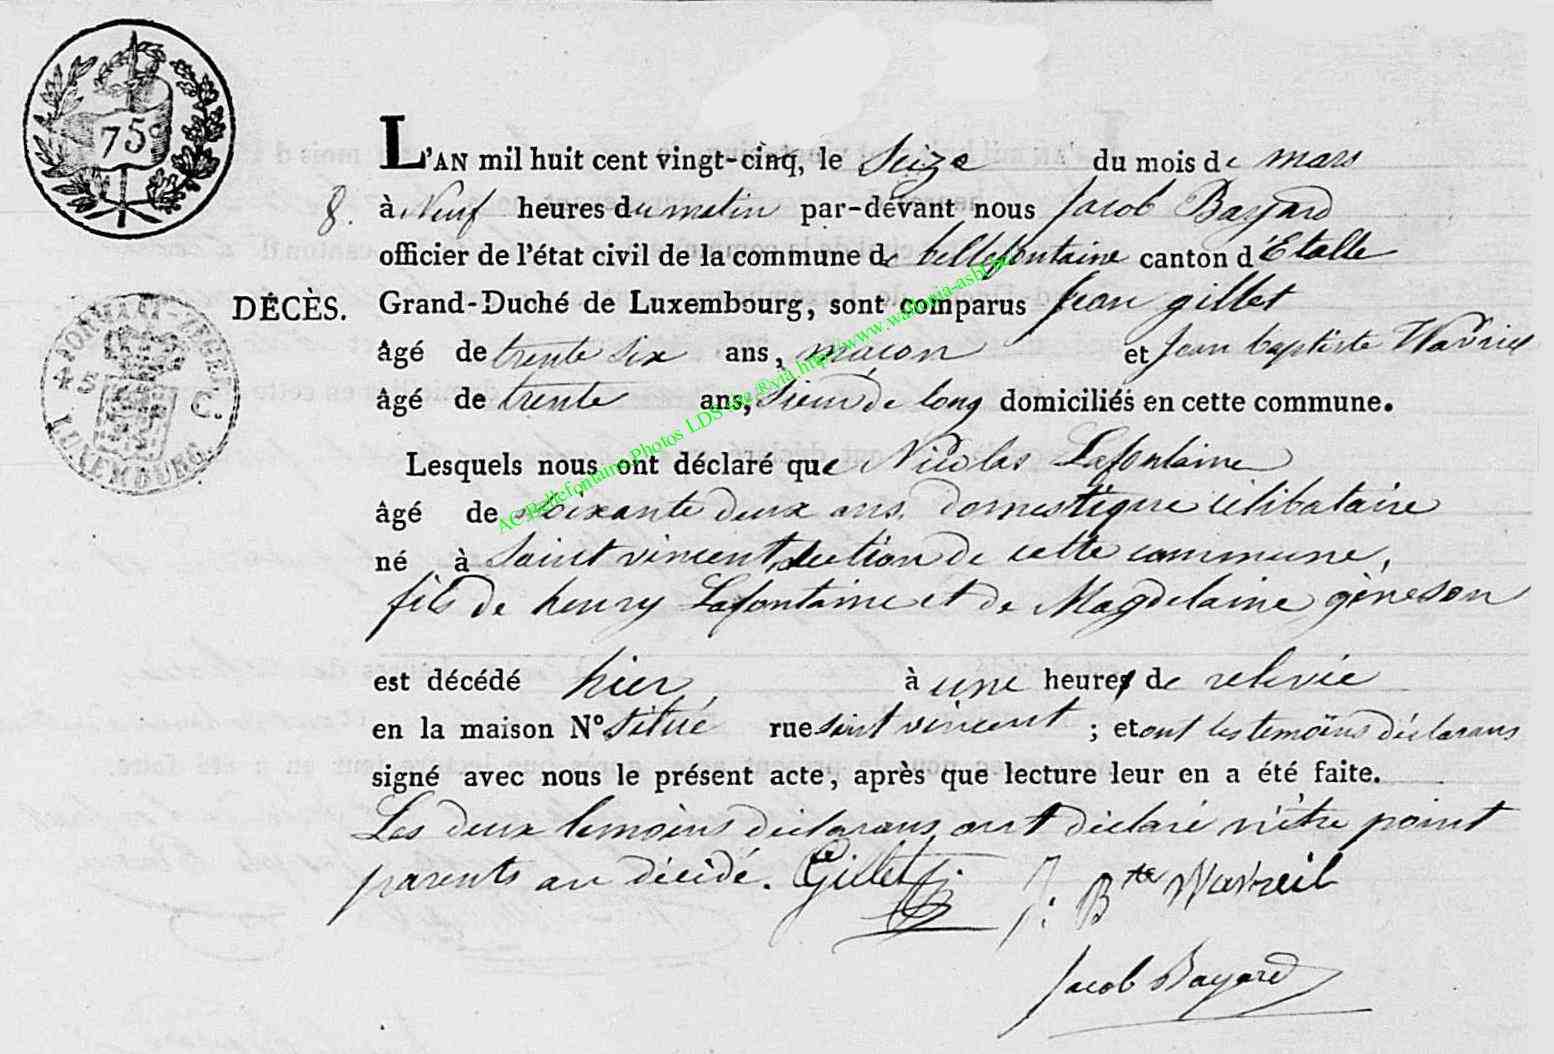 75c
L'AN mil huit cent vingt-cinq, le Seize du mois de mars
8. à Neuf heures du matin par-devant nous Jacob Bayard
officier de l'état civil de la commune de bellefontaine canton d'Etalle
DÉCÈS. Grand-Duché de Luxembourg, sont comparus Jean gillet
âgé de trente six ans, macon et Jean baptiste
âgé de trente ans, Sieur de long domiciliés en cette commune.
Lesquels nous ont déclaré que Nicolas Lafontaine
âgé de soixante deux ans, domestique célibataire
né à Saint vincent, section de cette commune,
fils de henry Lafontaine et de Magdelaine gèneson
est décédé hier, à une heure de relevée
en la maison N° situé rue saint vincent ; et ont les temoins déclarans
signé avec nous le présent acte, après que lecture leur en a été faite.
Les deux temoins déclarans ont déclaré n'être point
parents au décédé. Gillet J: Bte
Jacob Bayard
45 C.
LUXEMBOURG
AC Bellefontaine Photos LDS via http://www.wallonia-asbl.be